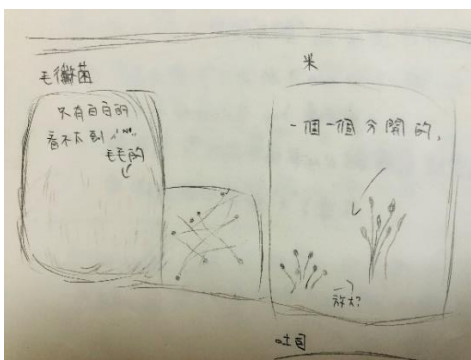 毛黴菌
只有白白的
看不太到
毛毛的
米
一個一個分開的,
放大?
吐司